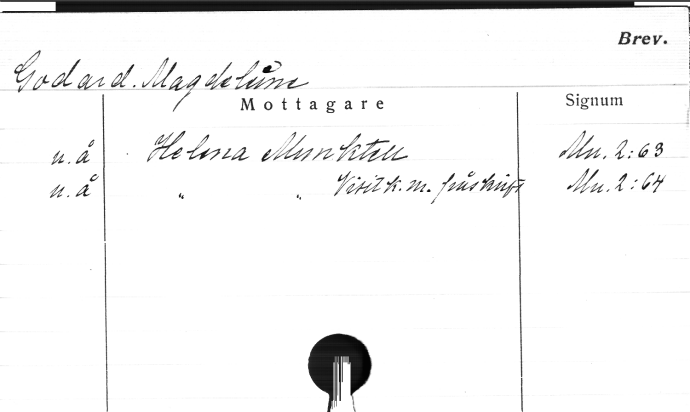 Brev.
Godard. Magdeleine
Mottagare Signum
u. å Helena Munktell Mu. 2:63
u. å " " Visitk. m. påskrift Mu. 2:64